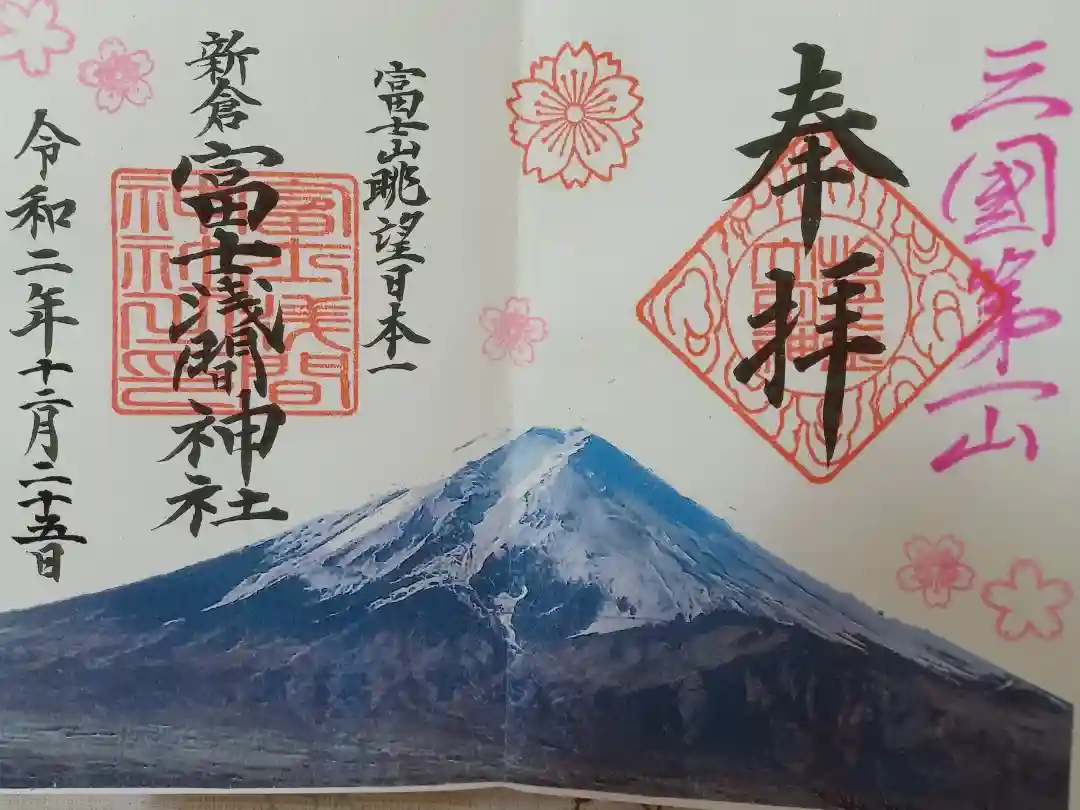 三國第一山
奉拝
富士山眺望日本一
新倉富士浅間神社
富士浅間
神社之印
令和二年十二月二十五日